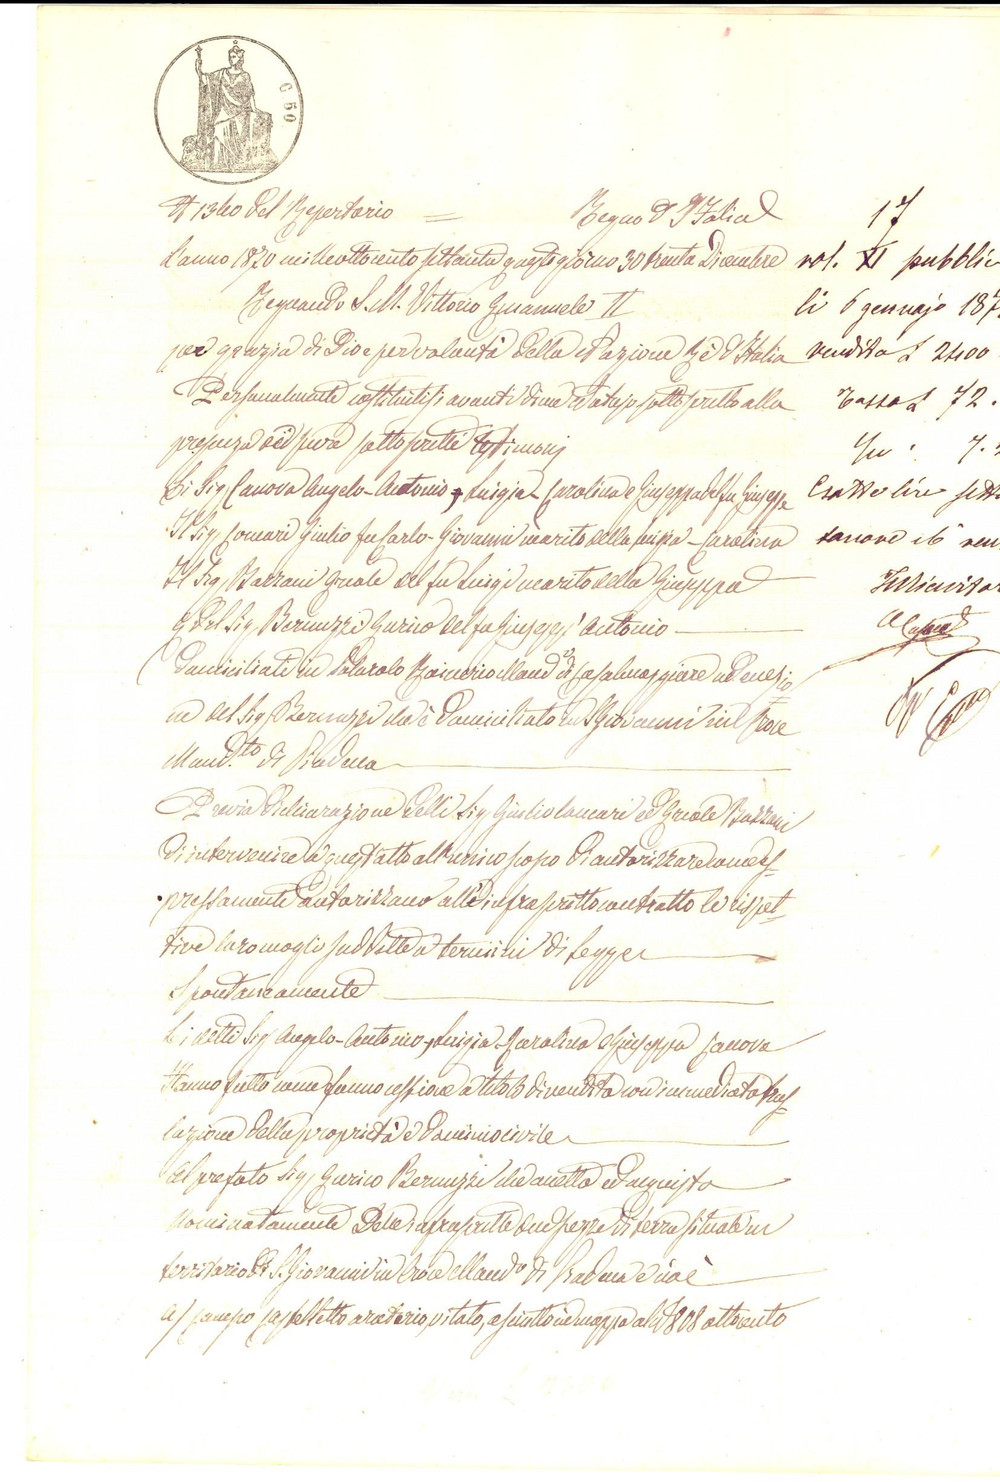 C 50
N 1360 del Repertorio = Regno d'Italia
L'anno 1870 mille ottocento settanta questo giorno 30 trenta Dicembre
Regnando S. M. Vittorio Emanuele II
per grazia di Dio e per volontà della Nazione Rè d'Italia
Personalmente costituitisi avanti di me Notajo sottoscritto alla
presenza dei pure sottoscritti testimonj
Li Sig Canova Angelo - Antonio, Luigia - Carolina e Giuseppa del fu Giuseppe
Il Sig Comari Giulio fu Carlo - Giovanni marito della Luigia - Carolina
Il Sig Bazzani Ercole del fu Luigi marito della Giuseppa
E del Sig Bernuzzi Enrico del fu Giuseppe Antonio
Domiciliati in Solarolo Rainerio Mand.to di Casalmaggiore ad eccezio
ne del Sig Bernuzzi che è domiciliato in S Giovanni in Croce
Mand.to di Piadena
Previa dichiarazione delli Sig Giulio Comari ed Ercole Bazzani
di intervenire a quest'atto all'unico scopo di autorizzare come es-
pressamente autorizzano all'infrascritto contratto le rispet-
tive loro mogli suddette a termini di Legge
Spontaneamente
Li detti Sig Angelo - Antonio, Luigia - Carolina e Giuseppa Canova
Hanno fatto come fanno cessione a titolo di vendita con immediata tras-
lazione della proprietà e dominio civile
Al prefato Sig Enrico Bernuzzi che accetta ed acquista
Nominatamente delle infrascritte due pezze di terra situate in
territorio di S. Giovanni in Croce Mand.o di Piadena e cioè
a) Campo Casteletto aratorio, vitato, asciutto in mappa al N 808 ottocento
17
vol. XI pubblic
li 6 gennajo 187
vendita L 2400
Tassa L 72.
7.
Esatte lire sett
tanove e C ven
Il Ricevitor